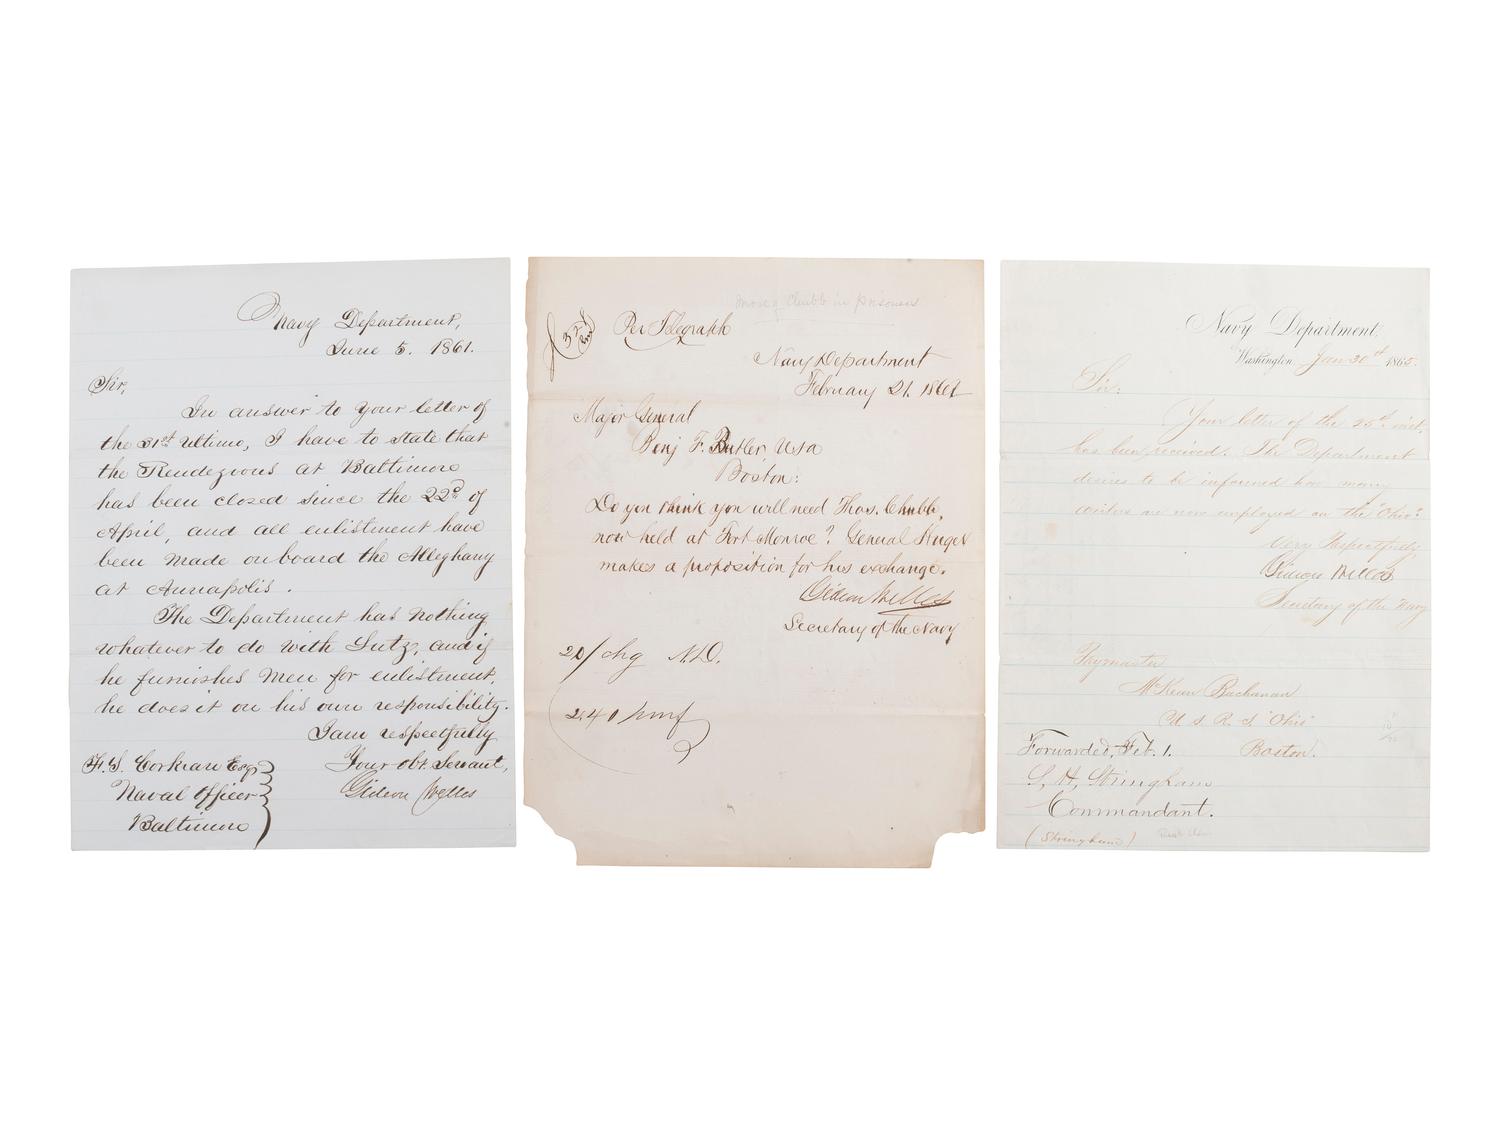 Navy Department,
June 5. 1861.
Sir,
In answer to your letter of
the 31st ultimo, I have to state that
the Rendezvous at Baltimore
has been closed since the 22d of
April, and all enlistment have
been made on board the Alleghany
at Annapolis.
The Department has nothing
whatever to do with Lutz, and if
he furnishes men for enlistment,
he does it on his own responsibility.
I am respectfully
Your obt. Servant,
Gideon Welles
F. S. Corkran Esqr
Naval Officer
Baltimore
Chubb in prisoners
Per Telegraph
Navy Department
February 21. 1862
Major General
Benj F. Butler, USA
Boston:
Do you think you will need Thos. Chubb,
now held at Fort Monroe? General Huger
makes a proposition for his exchange.
Gideon Welles
Secretary of the Navy
20/ chg N.D.
240 pmf
Navy Department,
Washington Jan 30th 1865.
Sir:
Your letter of the 25th inst.
has been received. The Department
desires to be informed how many
writers are now employed on the "Ohio".
Very Respectfully
Gideon Welles
Secretary of the Navy
Paymaster
McKean Buchanan
U S R S "Ohio"
Boston.
Forwarded, Feb. 1.
S. H. Stringham
Commandant.
(Stringham)